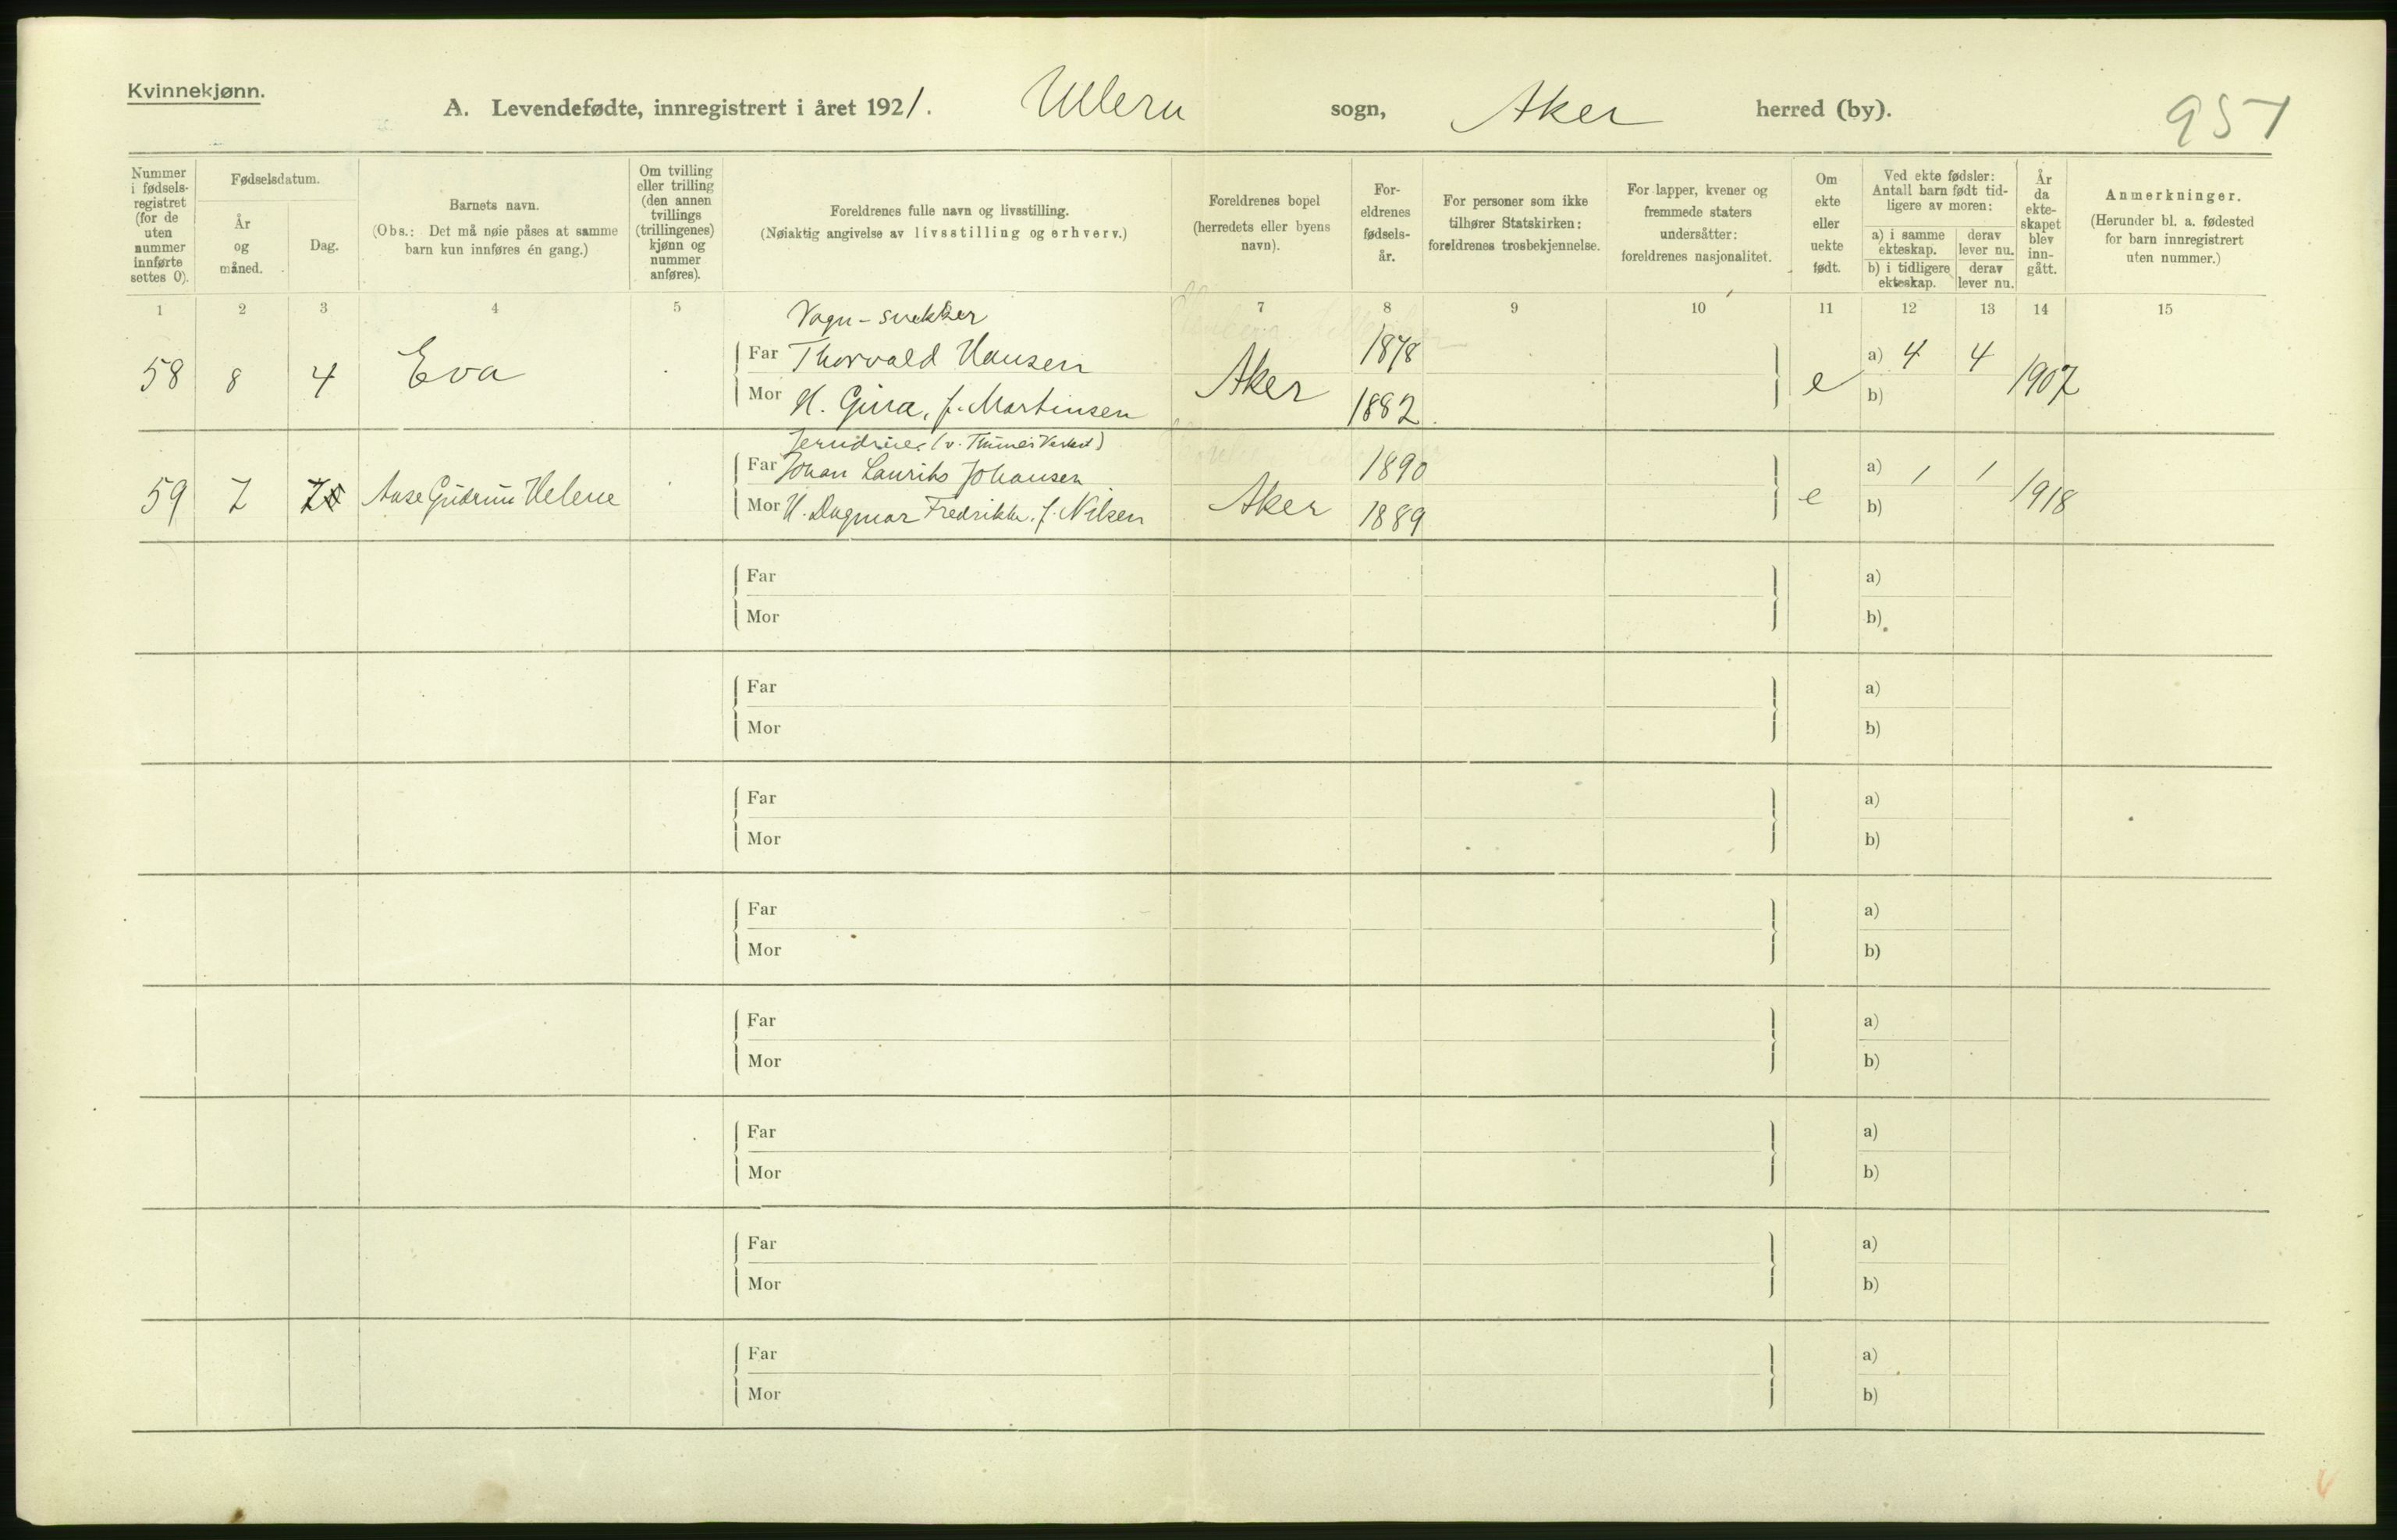 Kvinnekjønn.
A. Levendefødte, innregistrert i året 1921. Ullern sogn, Aker herred (by). 951
Nummer i fødsels-registret (for de uten nummer innførte settes 0).
Fødselsdatum.
År og måned.
Dag.
Barnets navn.
(Obs.: Det må nøie påses at samme barn kun innføres én gang.)
Om tvilling eller trilling (den annen tvillings (trillingenes) kjønn og nummer anføres).
Foreldrenes fulle navn og livsstilling.
(Nøiaktig angivelse av livsstilling og erhverv.)
Foreldrenes bopel (herredets eller byens navn).
For-eldrenes fødsels-år.
For personer som ikke tilhører Statskirken: foreldrenes trosbekjennelse.
For lapper, kvener og fremmede staters undersåtter: foreldrenes nasjonalitet.
Om ekte eller uekte født.
Ved ekte fødsler: Antall barn født tid-ligere av moren:
a) i samme ekteskap. derav lever nu.
b) i tidligere ekteskap. derav lever nu.
År da ekte-skapet blev inn-gått.
Anmerkninger.
(Herunder bl. a. fødested for barn innregistrert uten nummer.)
1 2 3 4 5 7 8 9 10 11 12 13 14 15
Vogn-snekker
58 8 4 Eva Far Thorvald Hansen Aker 1878 e a) 4 4 1907
Mor H. Gina, f. Martinsen 1882 b)
Jerndreier (v. Thunes Verksted)
59 7 7 Aase Gudrun Helene Far Johan Lauritz Johansen Aker 1890 e a) 1 1 1918
Mor H. Dagmar Fredrikke f. Nilsen 1889 b)
Far a)
Mor b)
Far a)
Mor b)
Far a)
Mor b)
Far a)
Mor b)
Far a)
Mor b)
Far a)
Mor b)
Far a)
Mor b)
Far a)
Mor b)